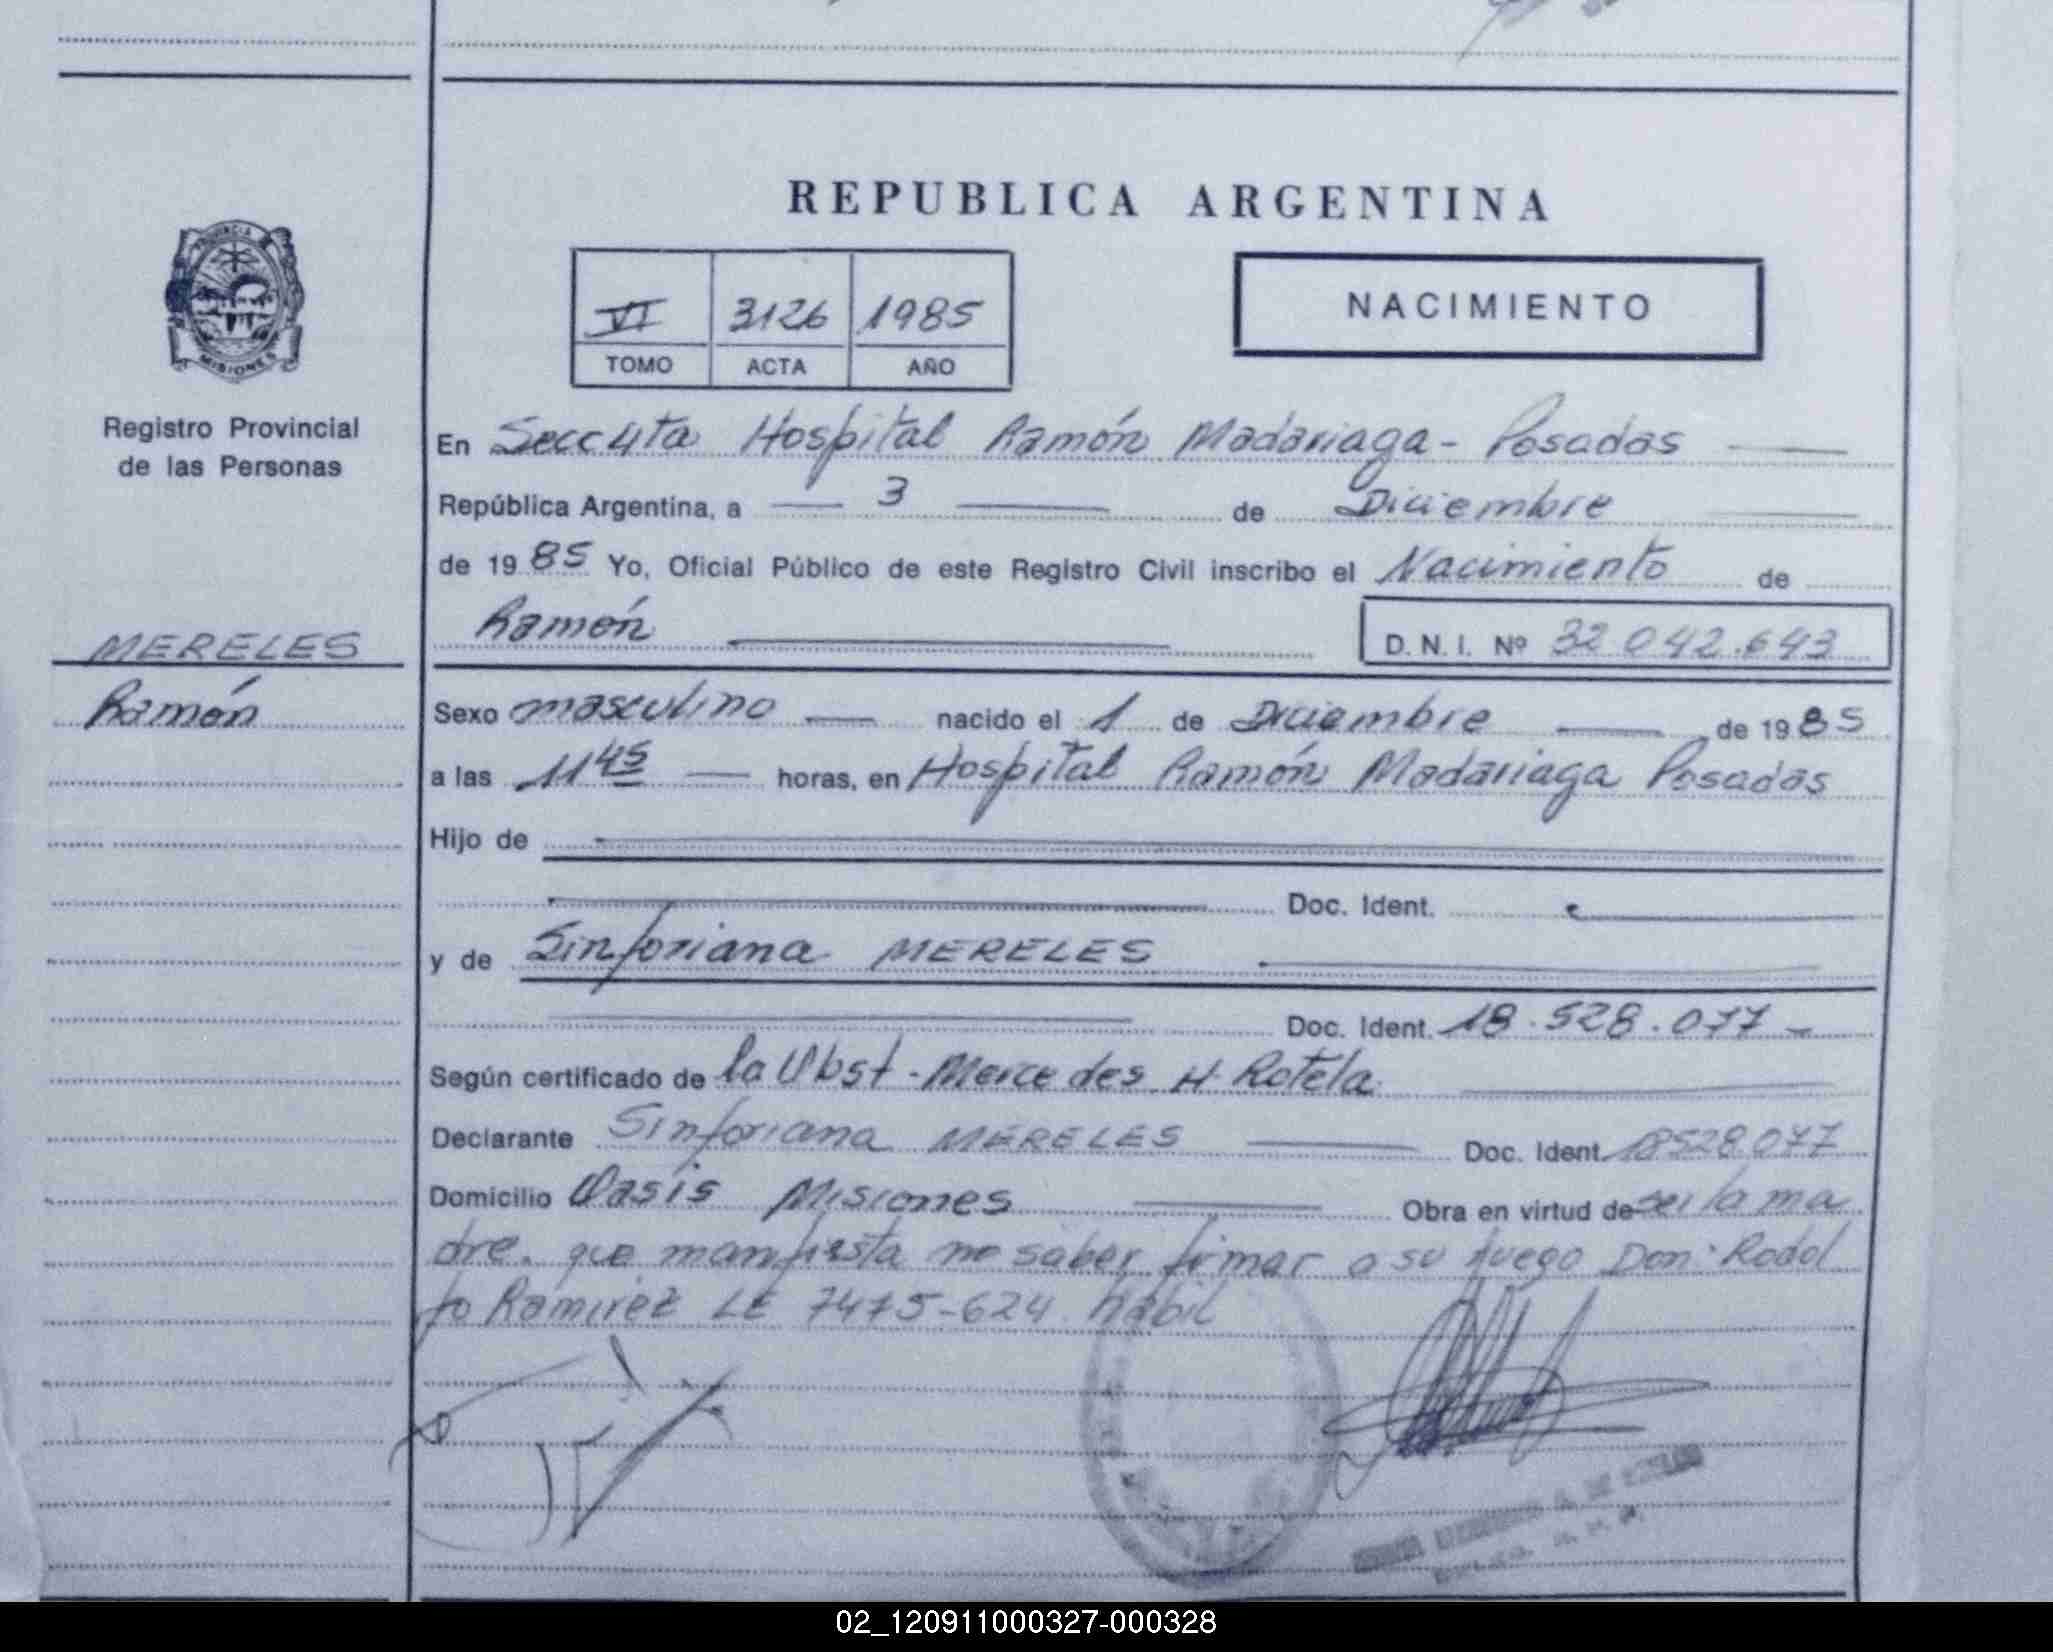 REPUBLICA ARGENTINA
PROVINCIA
MISIONES
VI 3126 1985
TOMO ACTA AÑO
NACIMIENTO
Registro Provincial
de las Personas
MERELES
Ramón
En Secc 4ta Hospital Ramón Madariaga - Posadas
República Argentina, a 3 de Diciembre
de 1985 Yo, Oficial Público de este Registro Civil inscribo el Nacimiento de
Ramón D.N.I. Nº 32042.643
Sexo masculino nacido el 1 de Diciembre de 1985
a las 11 45 horas, en Hospital Ramón Madariaga Posadas
Hijo de
Doc. Ident.
y de Sinforiana MERELES
Doc. Ident. 18.528.077
Según certificado de la Obst - Mercedes H Rotela
Declarante Sinforiana MERELES Doc. Ident. 18528.077
Domicilio Oasis Misiones Obra en virtud de ser la ma
dre. que manifiesta no saber firmar a su ruego Don: Rodol
fo Ramirez LE 7475-624 habil
02_120911000327-000328